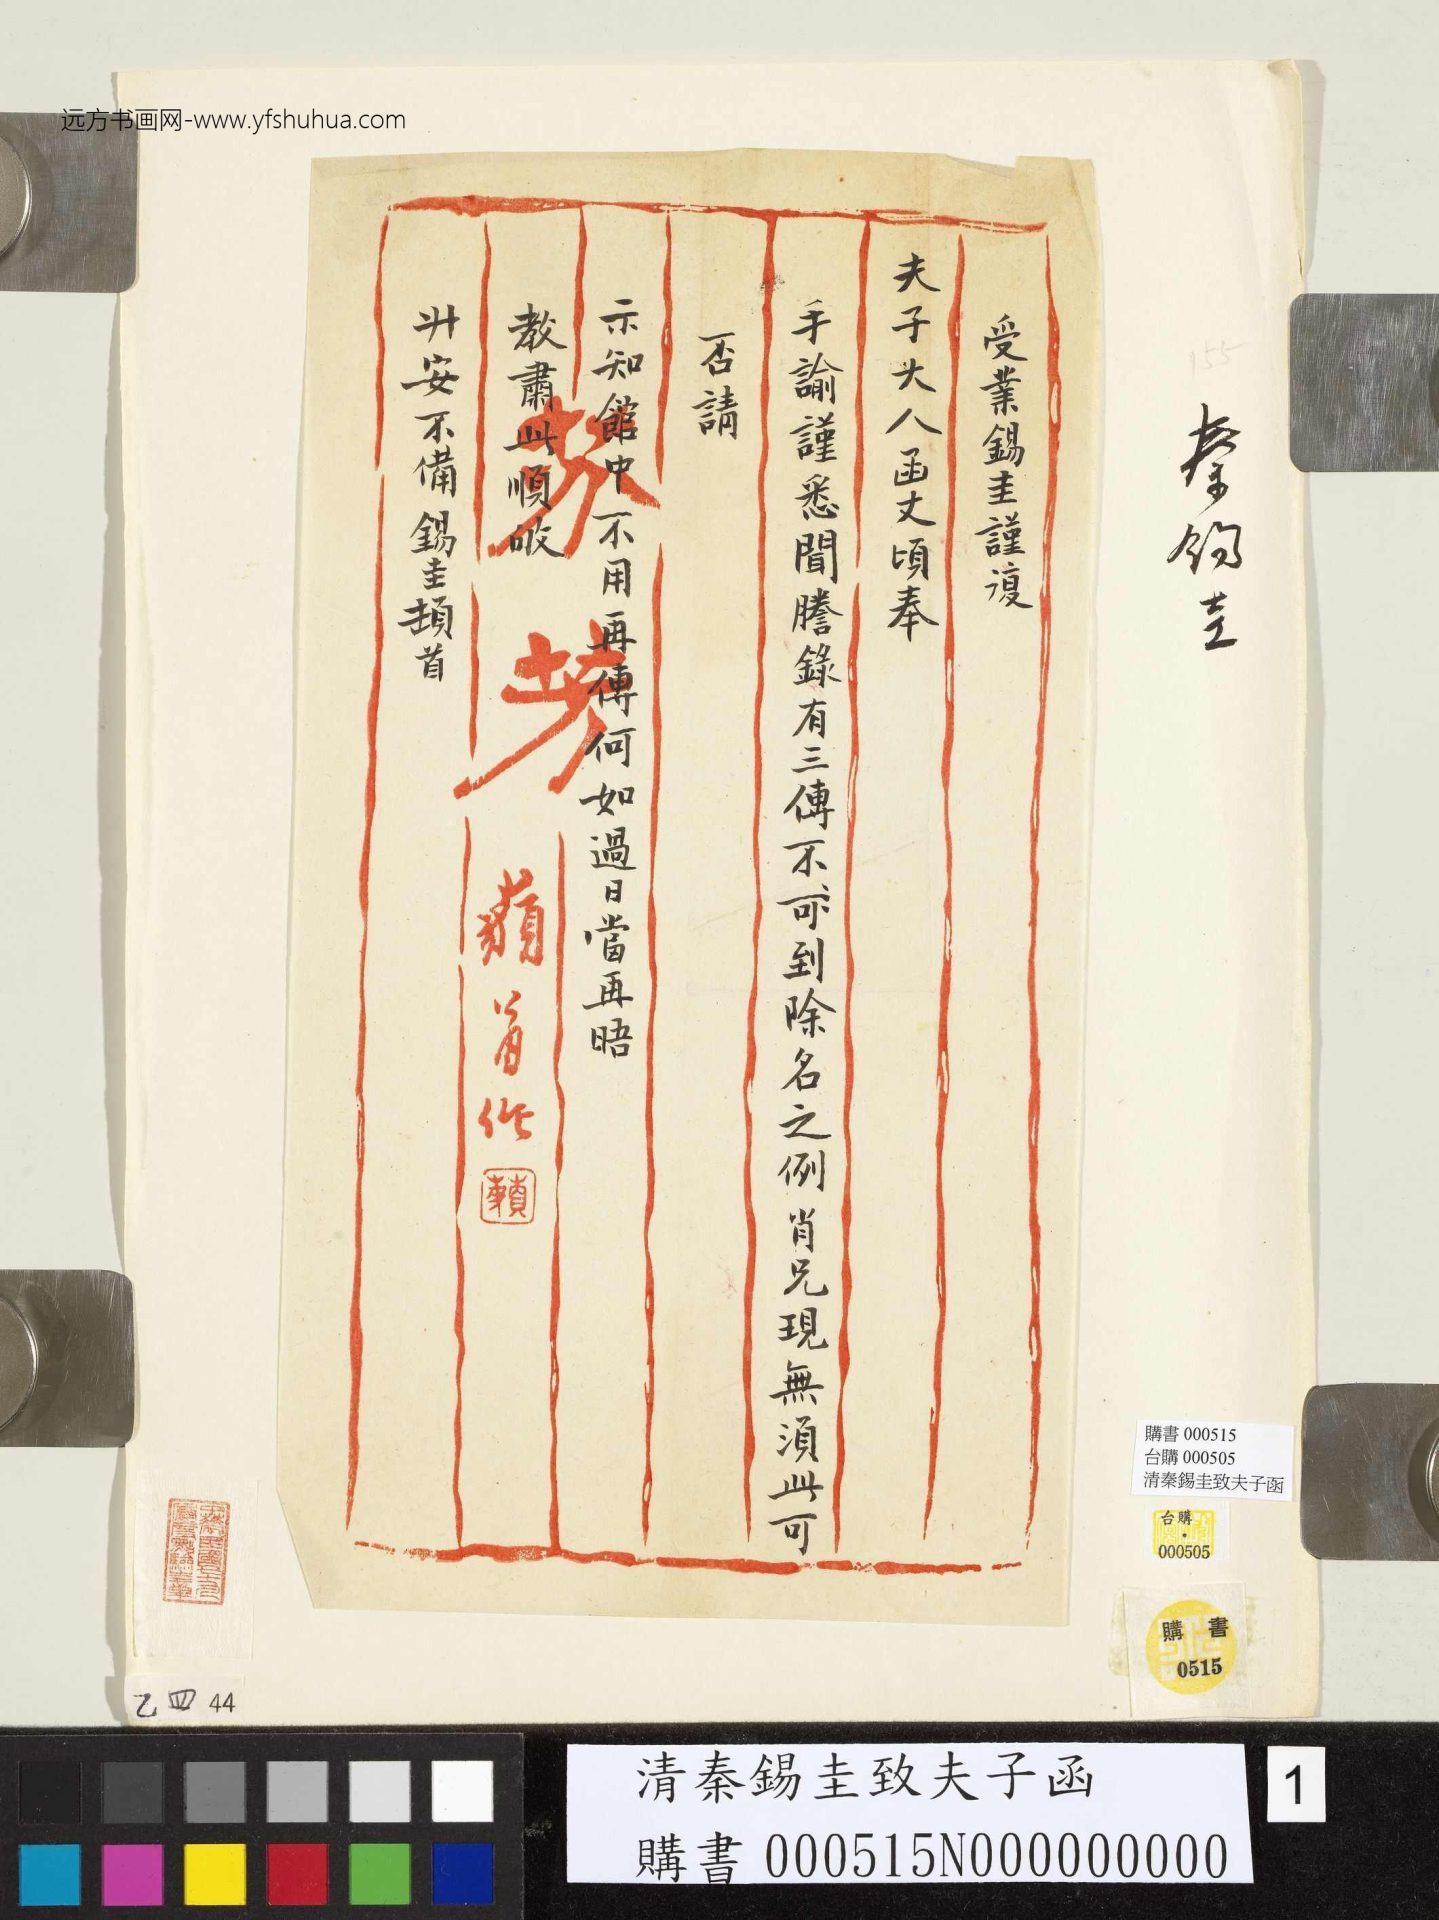 远方书画网-www.yfshuhua.com
受業錫圭謹復
夫子大人函丈頃奉
手諭謹悉聞謄錄有三傳不到除名之例肖兄現無須此可
否請
示知館中不用再傳何如過日當再晤
教肅此順敂
升安不備錫圭頓首
作
秦錫圭
155
購書 000515
台購 000505
清秦錫圭致夫子函
台購
000505
購書
0515
乙四 44
清秦錫圭致夫子函
購書 000515N000000000
1